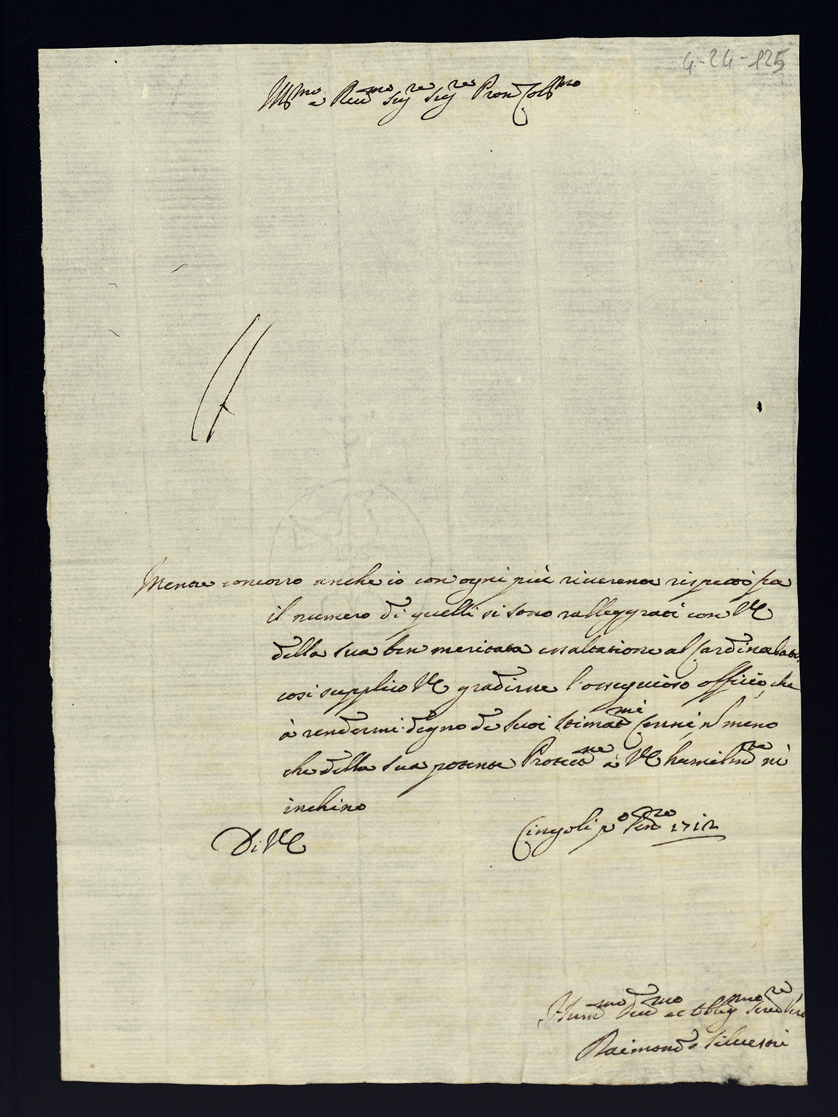 4-24-125
Ill.mo e Reu.mo Sig.re Sig.re Pron Col.mo
Mentre concorro anche io con ogni più riuerente rispetto fra
il numero di quelli si sono ralleggrati con VE
della sua ben meritata essaltatione al Cardinalato,
cosi supplico VE gradirne l'ossequioso officio, che
à rendermi degno de suoi stimat.mi Cenni, n meno
che della sua potente Protett.ne à VE humilm.te m'
inchino
Di VE
Cingoli p.o 1712
Hum.mo Deu.mo et Obblig.mo Seru.re
Raimondo Siluestri